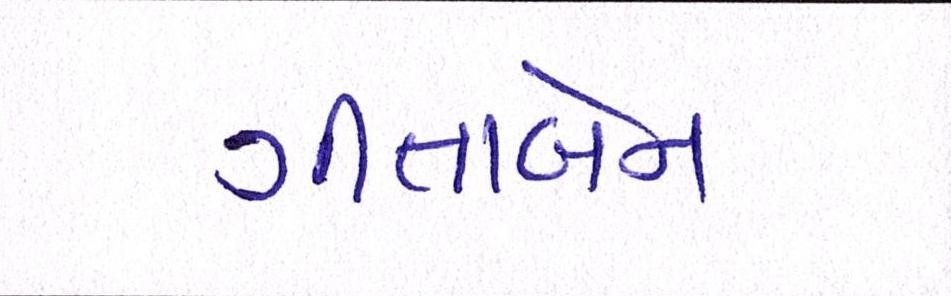 ગીતાબેન